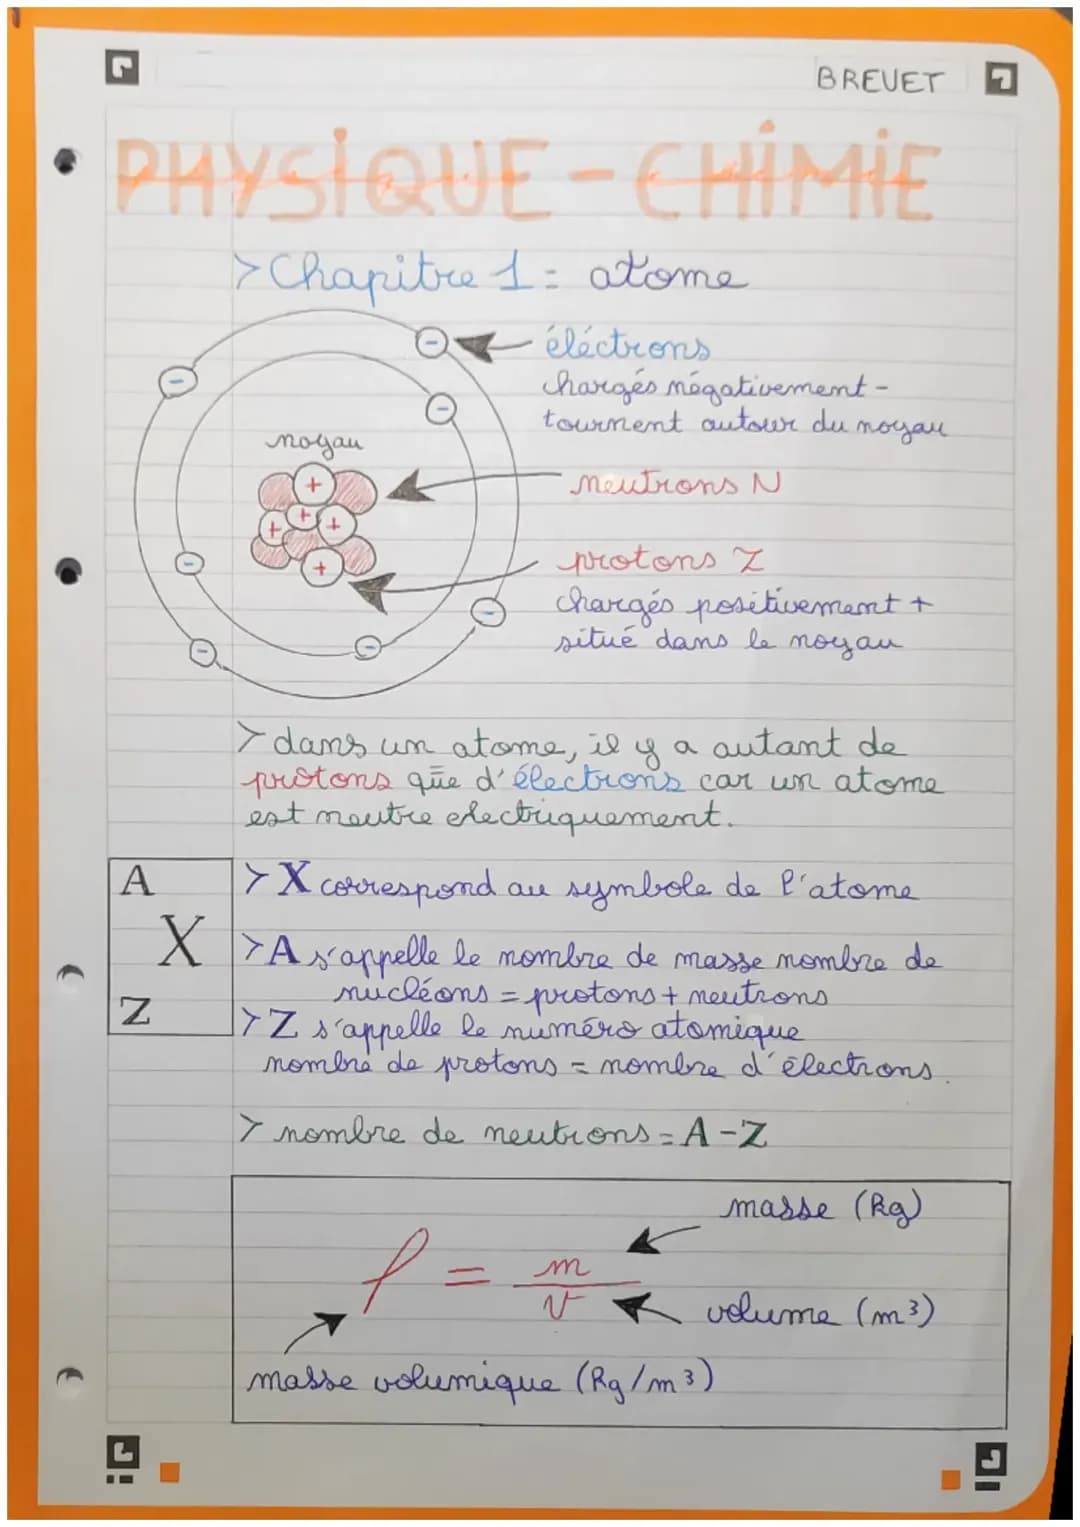 BREVET
PHYSIQUE - CHIMIE
> Chapitre 1 = atome
éléctrons
chargés négativement -
tournent autour du noyau
noyau
neutrons N
protons Z
chargés positivement +
situé dans le noyau
> dans un atome, il y a autant de
protons que d'électrons car un atome
est neutre electriquement.
A
X
Z
> X correspond au symbole de l'atome
> A s'appelle le nombre de masse nombre de
nucléons = protons + neutrons
> Z s'appelle le numéro atomique
nombre de protons = nombre d'électrons.
> nombre de neutrons = A - Z
masse (kg)
ρ = m / v
volume (m³)
masse volumique (kg/m³)